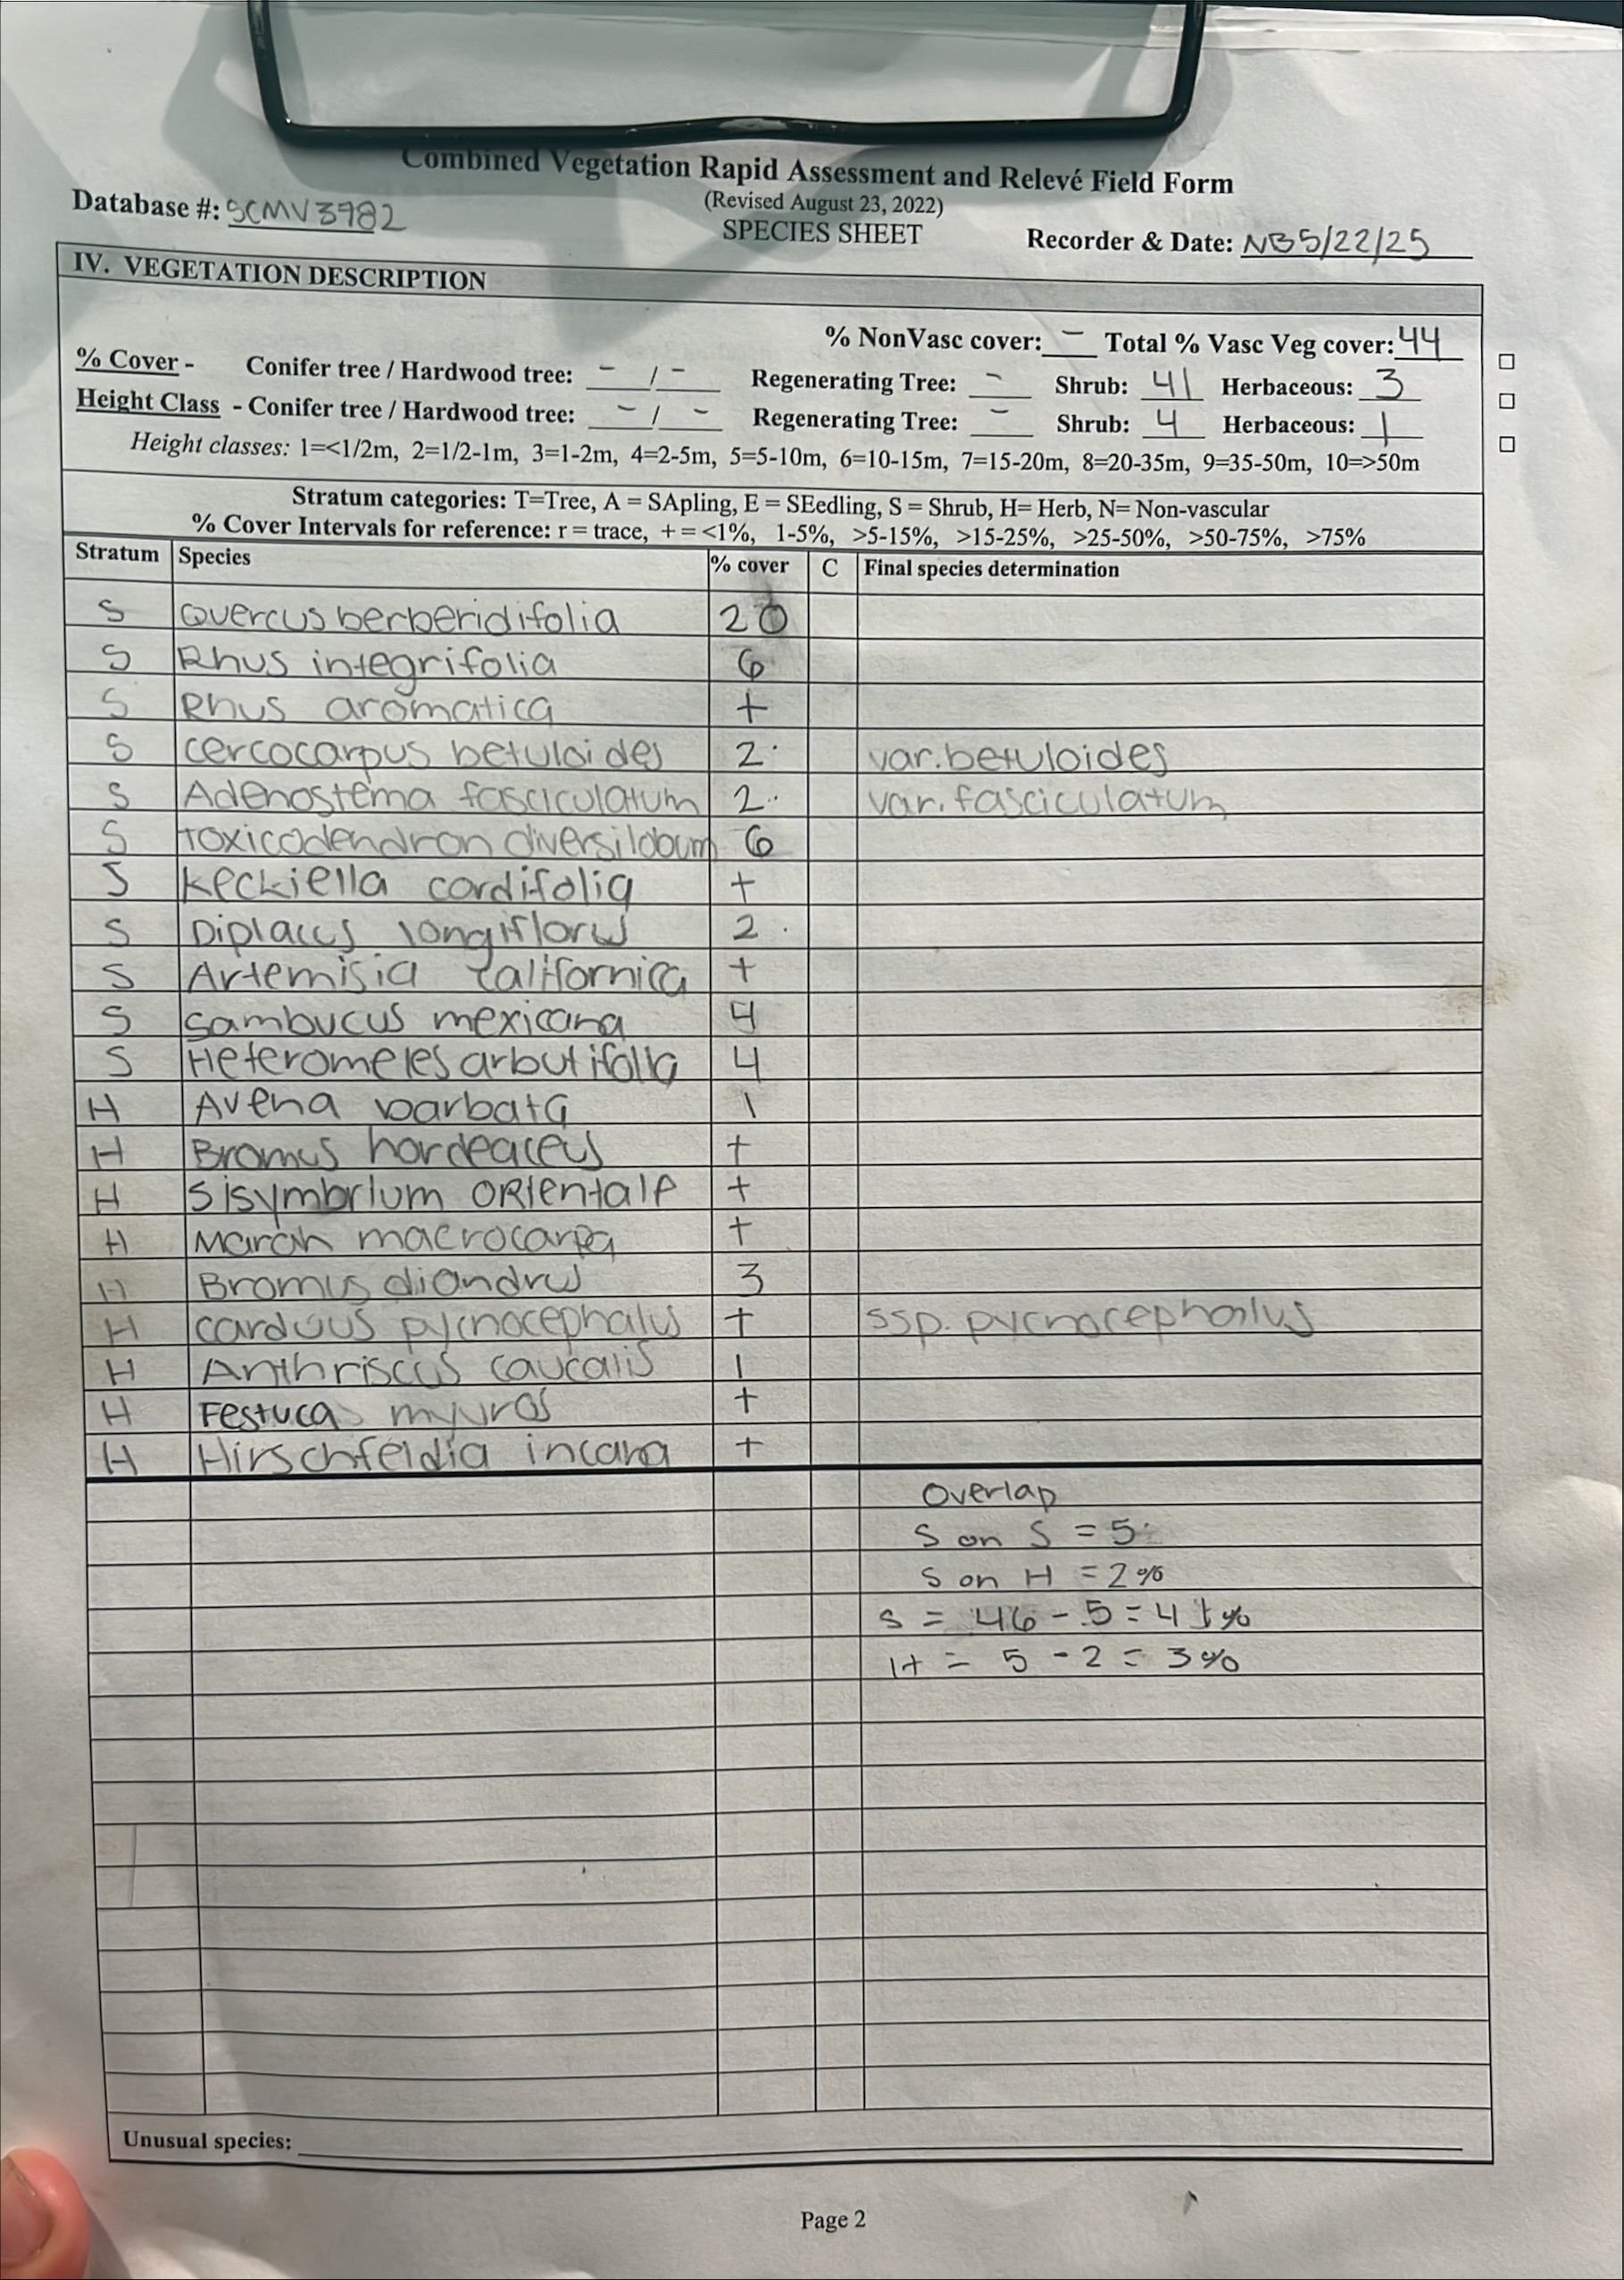 Combined Vegetation Rapid Assessment and Relevé Field Form
Database #: SCMV3782
(Revised August 23, 2022)
SPECIES SHEET
Recorder & Date: NB 5/22/25
IV. VEGETATION DESCRIPTION
% NonVasc cover: – Total % Vasc Veg cover: 44
% Cover - Conifer tree / Hardwood tree: – / – Regenerating Tree: – Shrub: 41 Herbaceous: 3
Height Class - Conifer tree / Hardwood tree: – / – Regenerating Tree: – Shrub: 4 Herbaceous: 1
Height classes: 1=<1/2m, 2=1/2-1m, 3=1-2m, 4=2-5m, 5=5-10m, 6=10-15m, 7=15-20m, 8=20-35m, 9=35-50m, 10=>50m
Stratum categories: T=Tree, A = SApling, E = SEedling, S = Shrub, H= Herb, N= Non-vascular
% Cover Intervals for reference: r = trace, + = <1%, 1-5%, >5-15%, >15-25%, >25-50%, >50-75%, >75%
Stratum Species % cover C Final species determination
S Quercus berberidifolia 20
S Rhus integrifolia 6
S Rhus aromatica +
S cercocarpus betuloides 2 var. betuloides
S Adenostema fasciculatum 2 var. fasciculatum
S toxicodendron diversilobum 6
S Keckiella cordifolia +
S Diplacus longiflorus 2
S Artemisia californica +
S Sambucus mexicana 4
S Heteromeles arbutifolia 4
H Avena barbata 1
H Bromus hordeaceus +
H Sisymbrium ORIentale +
H Marah macrocarpa +
H Bromus diandrus 3
H carduus pycnocephalus + ssp. pycnocephalus
H Anthriscus caucalis 1
H Festuca myuros +
H Hirschfeldia incana +
Overlap
S on S = 5
S on H = 2%
S = 46 - 5 = 41%
H = 5 - 2 = 3%
Unusual species:
Page 2